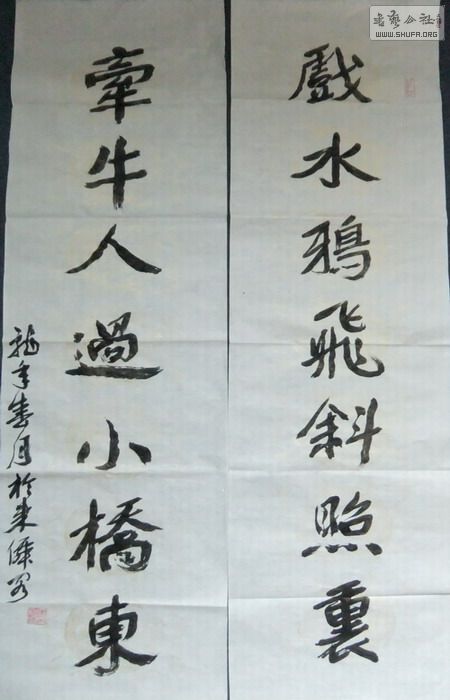 戲水鴉飛斜照裏
牽牛人過小橋東
龍年春月於東
書藝公社
WWW.SHUFA.ORG